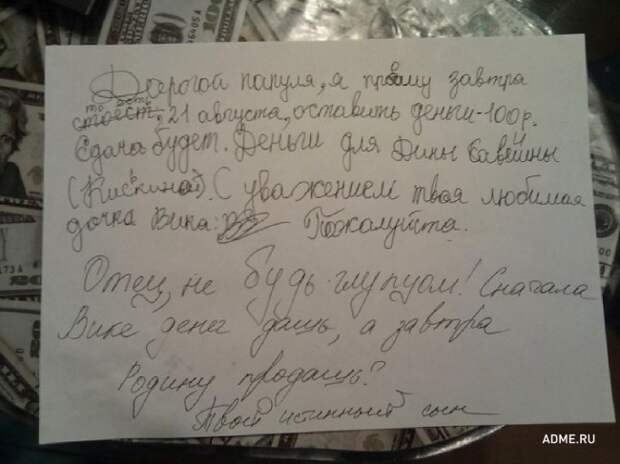 Дорогой папуля, я прошу завтра
то есть, 21 августа, оставить деньги-100р.
Сдача будет. Деньги для Дины Савейны
(Кискиной). С уважением твоя любимая
дочка Вика. Пожалуйста.
Отец, не будь глупцом! Сначала
Вике денег дашь, а завтра
Родину продашь?
Твой истинный сын
ADME.RU